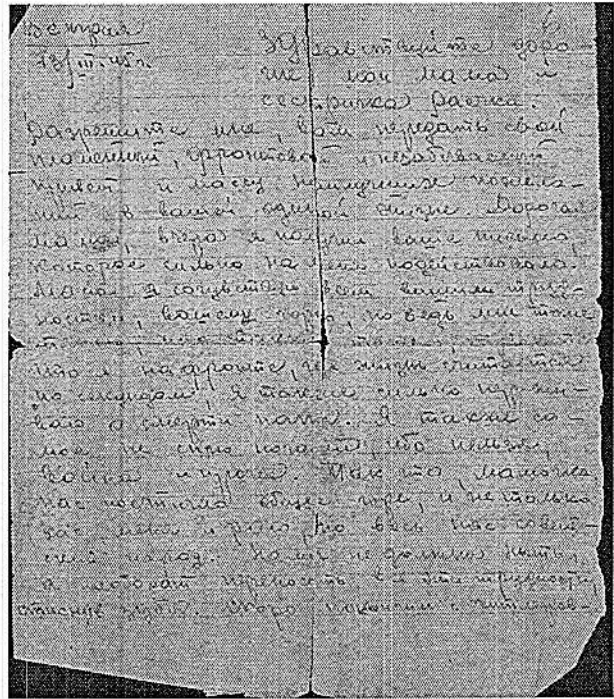 Австрия Здравствуйте доро-
13/III-45 г. гие мои мама и
сестричка Раечка.
Разрешите мне, вам передать свой
пламенный, фронтовой и незабываемый
привет и массу наилучших пожела-
ний в вашей жизни. Дорогая
мама, вчера я получил ваше письмо,
которое сильно на меня подействовало.
Мама я сочувствую всем вашим труд-
ностям, вашему горю, но ведь мне тоже
что я на фронте, где жизнь считается
по секундам. Я также сильно пережи-
ваю о смерти папы. Я также са-
мое не сплю ночами, но
война и
Нас постигло общее горе, и не только
вас меня и Раю, но весь наш совет-
ский народ. Но мы не должны ныть,
а все эти трудности
стиснув зубы. Скоро покончим с гитлеров-